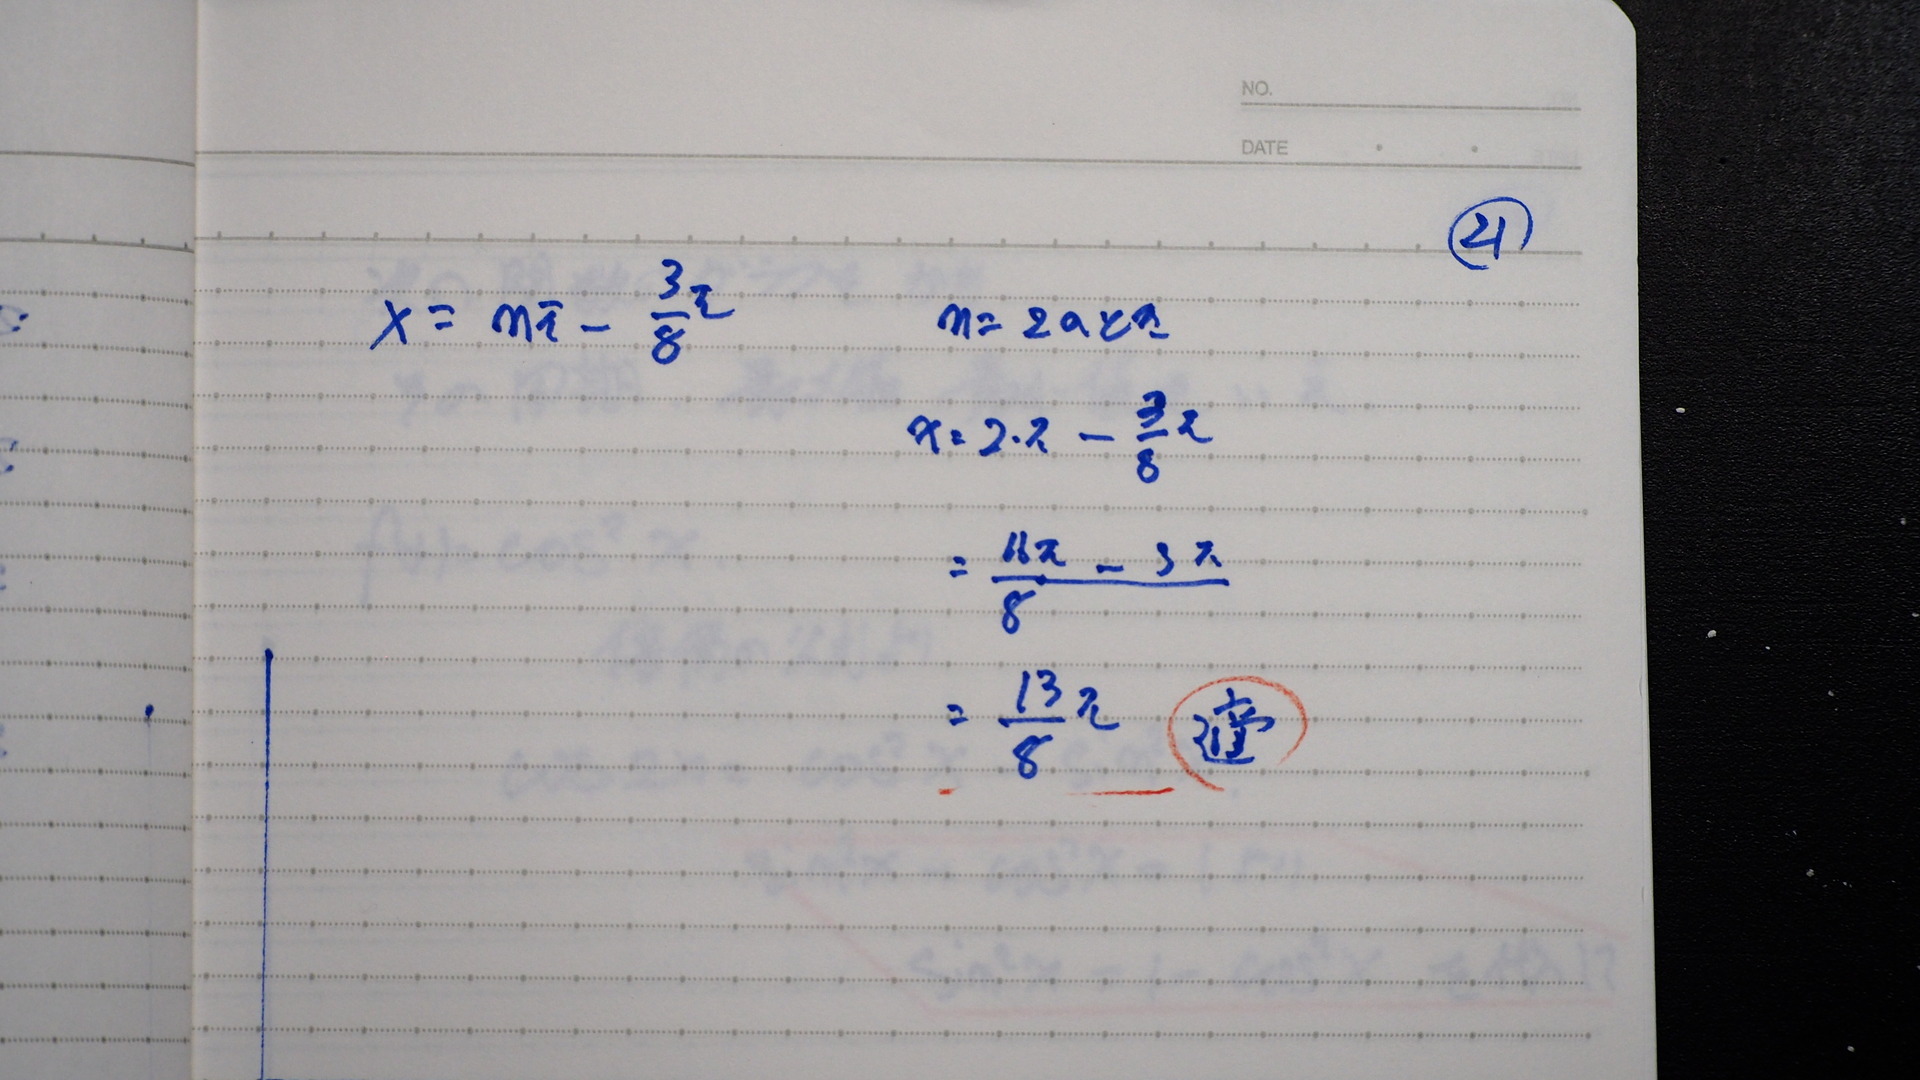 NO.
DATE
21
x = nπ - 3/8 π
n = 2のとき
x = 2・π - 3/8 π
= 16π - 3π / 8
= 13/8 π 適